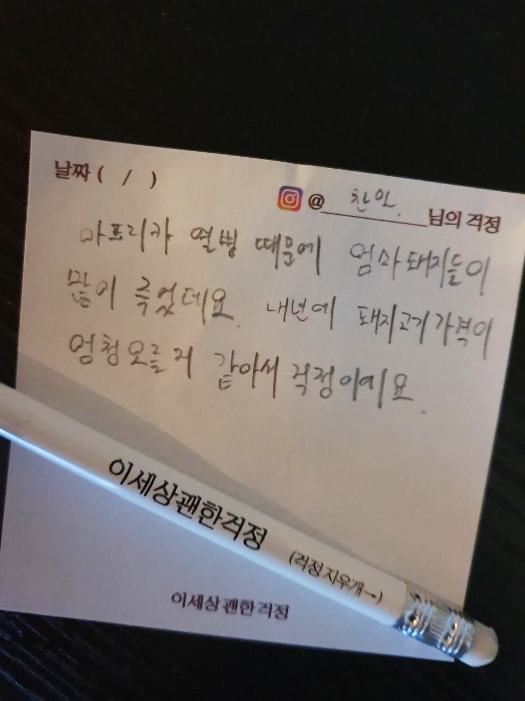 날짜 ( / )
@ 찬인. 님의 걱정
아프리카 열병 때문에 엄마돼지들이
많이 죽었데요. 내년에 돼지고기가격이
엄청오를거 같아서 걱정이예요.
이세상괜한걱정
(걱정지우개→)
이세상괜한걱정